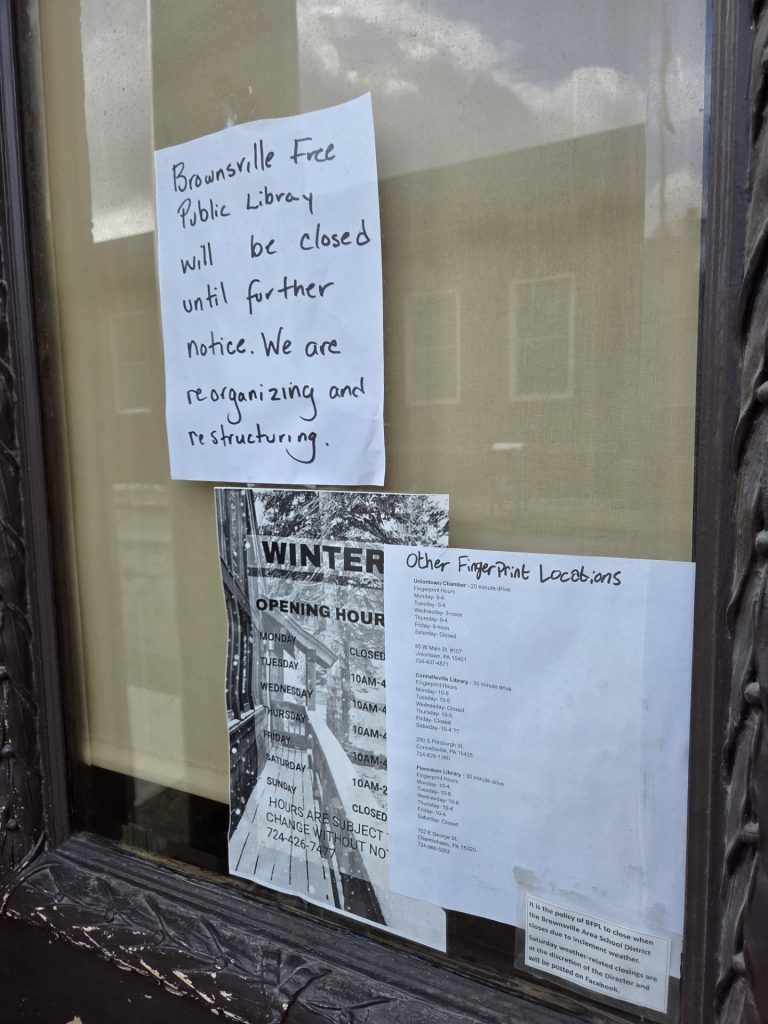 Brownsville Free
Public Library
will be closed
until further
notice. We are
reorganizing and
restructuring.
WINTER
OPENING HOUR
MONDAY CLOSED
TUESDAY 10AM-4
WEDNESDAY 10AM-4
THURSDAY 10AM-4
FRIDAY 10AM-4
SATURDAY 10AM-2
SUNDAY CLOSED
HOURS ARE SUBJECT
CHANGE WITHOUT NOT
724-426-7477
Other Fingerprint Locations
Uniontown Chamber - 20 minute drive
Fingerprint Hours
Monday- 9-4
Tuesday- 9-4
Wednesday- 9-noon
Thursday- 9-4
Friday- 9-noon
Saturday- Closed
65 W Main St, #107
Uniontown, PA 15401
724-437-4571
Connellsville Library - 30 minute drive
Fingerprint Hours
Monday- 10-5
Tuesday- 10-5
Wednesday- Closed
Thursday- 10-5
Friday- Closed
Saturday- 10-4 ??
299 S Pittsburgh St,
Connellsville, PA 15425
724-628-1380
Flenniken Library - 30 minute drive
Fingerprint Hours
Monday- 10-4
Tuesday- 10-6
Wednesday- 10-6
Thursday- 10-4
Friday- 10-4
Saturday- Closed
102 E George St,
Carmichaels, PA 15320
724-966-5263
It is the policy of BFPL to close when
the Brownsville Area School District
closes due to inclement weather.
Saturday weather-related closings are
at the discretion of the Director and
will be posted on Facebook.